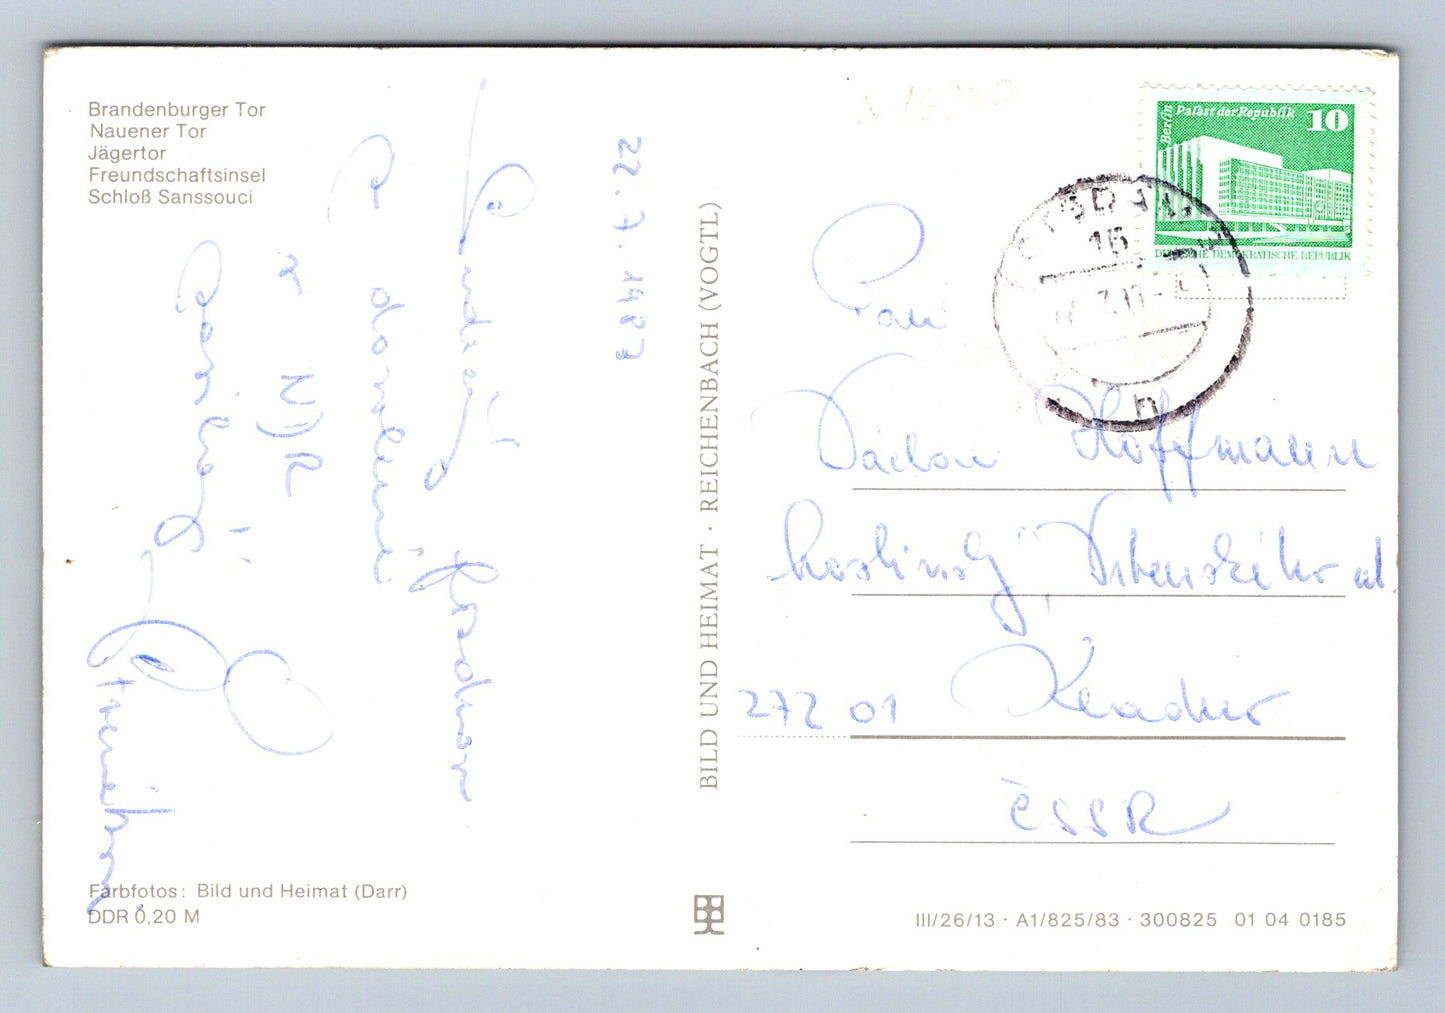 Brandenburger Tor
Nauener Tor
Jägertor
Freundschaftsinsel
Schloß Sanssouci
22.7.1987
Srdečný pozdrav
z dovolené
v NDR
Farbfotos: Bild und Heimat (Darr)
DDR 0,20 M
BILD UND HEIMAT · REICHENBACH (VOGTL)
Berlin
Palast der Republik
10
DEUTSCHE DEMOKRATISCHE REPUBLIK
16
n
Pan
Václav Hoffmann
272 01 Kladno
ČSSR
III/26/13 · A1/825/83 · 300825 01 04 0185